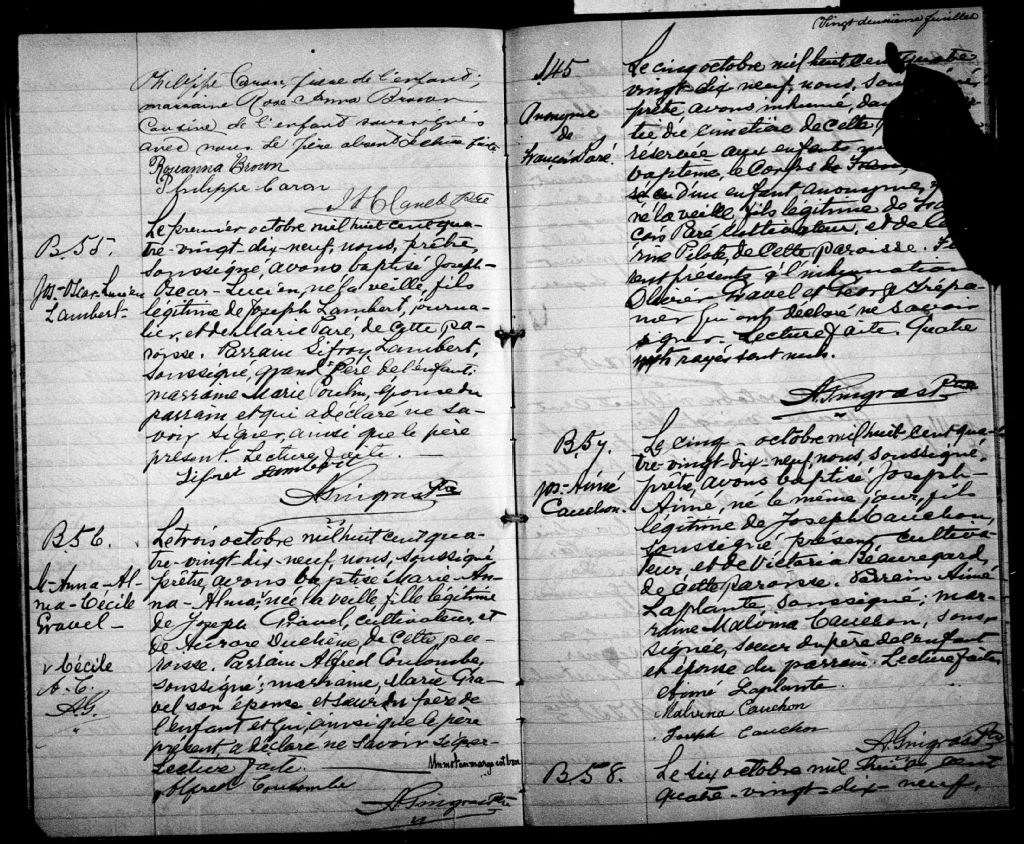 Philippe Caron, frère de l'enfant;
marraine Rose Anna Brown
Cousine de l'enfant soussignés
avec nous le père absent Lecture faite
Roseanna Brown
Philippe Caron
Ptre
B. 55.
Jos-Oscar-Lucien
Lambert-
Le premier octobre mil huit cent qua-
tre-vingt-dix-neuf, nous, prêtre
soussigné, avons baptisé Joseph-
Oscar-Lucien, né la veille, fils
légitime de Joseph Lambert, journa-
lier, et de Marie Paré, de cette pa-
roisse. Parrain Sifroy Lambert,
soussigné, grand'père de l'enfant;
marraine Marie Poulin, épouse du
parrain et qui a déclaré ne sa-
voir signer, ainsi que le père
présent. Lecture faite.
Sifret Lambert
A Gingras Ptre
B. 56.
M-Anna-Al-
ma-Cécile
Gravel-
v Cécile
A. C.
A.G.
Le trois octobre mil huit cent qua-
tre-vingt-dix-neuf, nous, soussigné,
prêtre, avons baptisé Marie-An-
na-Alma, v née la veille fille légitime
de Joseph Gravel, cultivateur, et
de Aurore Duchêne, de cette pa-
roisse. Parrain Alfred Coulombe,
soussigné; marraine, Marie Gra-
vel son épouse et sœur du père de
l'enfant et qui, ainsi que le père
présent a déclaré ne savoir signer
Lecture faite. Un mot en marge est bon
Alfred Coulombe
A Gingras Ptre
Vingt deuxième feuillet
S45
Anonyme
de
François Paré.
Le cinq octobre mil huit cent quatre
vingt-dix-neuf, nous, sous
prêtre, avons inhumé, dans
tie du cimetière de cette
réservée aux enfants
baptême, le corps de
d'un enfant anonyme,
né la veille, fils légitime de
çois Paré cultivateur, et de
rine Pilote, de cette paroisse.
ent présents à l'inhumation
Olivier Gravel et George Trépa-
nier qui ont déclaré ne savoir
signer. Lecture faite. Quatre
mots rayés sont nuls.
A Gingras Ptre
B. 57.
Jos-Aimé
Cauchon.
Le cinq octobre mil huit cent qua-
tre-vingt-dix-neuf, nous, soussigné,
prêtre, avons baptisé Joseph-
Aimé, né le même jour, fils
légitime de Joseph Cauchon,
soussigné présent, cultiva-
teur, et de Victoria Beauregard,
de cette paroisse. Parrain Aimé
Laplante, soussigné; mar-
raine Malvina Cauchon, sous-
signée, sœur du père de l'enfant
et épouse du parrain. Lecture faite.
Aimé Laplante
Malvina Cauchon
Joseph Cauchon
A Gingras Ptre
B. 58.
Le six octobre mil huit cent
quatre-vingt-dix-neuf,